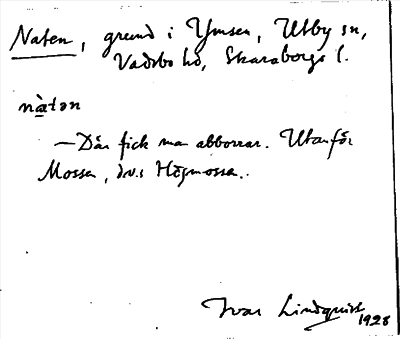 Naten, grund i Ymsen, Utby sn,
Vadsbo hd, Skaraborgs l.
nàtən
— Där fick man abborrar. Utanför
Mossen, dvs Högmossa.
Ivar Lindquist
1928